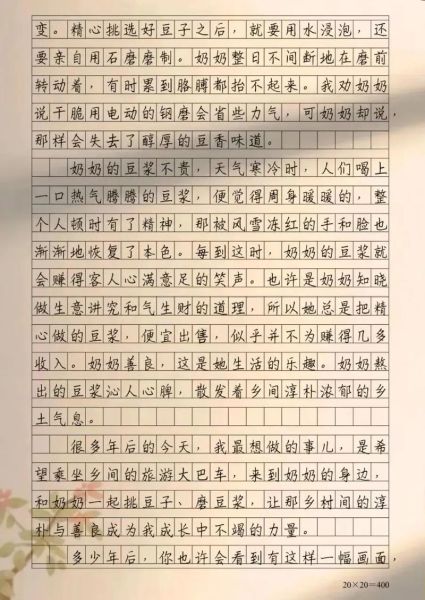 变。精心挑选好豆子之后，就要用水浸泡，还
要亲自用石磨磨制。奶奶整日不间断地在磨前
转动着，有时累到胳膊都抬不起来。我劝奶奶
说干脆用电动的钢磨会省些力气，可奶奶却说，
那样会失去了醇厚的豆香味道。
奶奶的豆浆不贵，天气寒冷时，人们喝上
一口热气腾腾的豆浆，便觉得周身暖暖的，整
个人顿时有了精神，那被风雪冻红的手和脸也
渐渐地恢复了本色。每到这时，奶奶的豆浆就
会赚得客人心满意足的笑声。也许是奶奶知晓
做生意讲究和气生财的道理，所以她总是把精
心做的豆浆，便宜出售，似乎并不为赚得几多
收入。奶奶善良，这是她生活的乐趣。奶奶熬
出的豆浆沁人心脾，散发着乡间淳朴浓郁的乡
土气息。
很多年后的今天，我最想做的事儿，是希
望乘坐乡间的旅游大巴车，来到奶奶的身边，
和奶奶一起挑豆子、磨豆浆，让那乡村间的淳
朴与善良成为我成长中不竭的力量。
多少年后，你也许会看到有这样一幅画面，
20×20=400